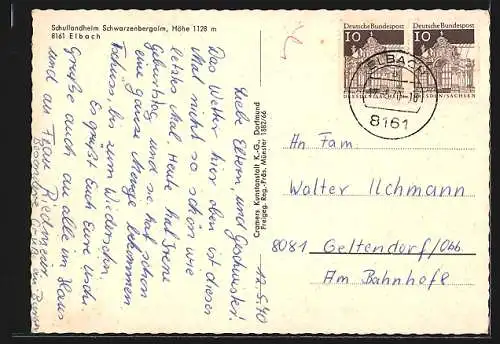 Schullandheim Schwarzenbergalm, Höhe 1128 m
8161 Elbach
12.5.70
Liebe Eltern, und Geschwister!
Das Wetter hier oben ist dieses
Mal nicht so schön wie
letztes Mal. Heute hat Irene
Geburtstag und sie hat schon
eine ganze Menge bekommen.
Tschüss, bis zum Wiedersehn
Es grüßt Euch Eure
Grüße auch an alle im Haus
und an Frau Riedmeir
Cramers Kunstanstalt K.-G., Dortmund
Freigeg. Reg.-Präs. Münster 1382/66
Deutsche Bundespost
10
Deutsche Bundespost
10
ELBACH
8161
An Fam.
Walter Ilchmann
8081 Geltendorf/Obb
Am Bahnhof 8